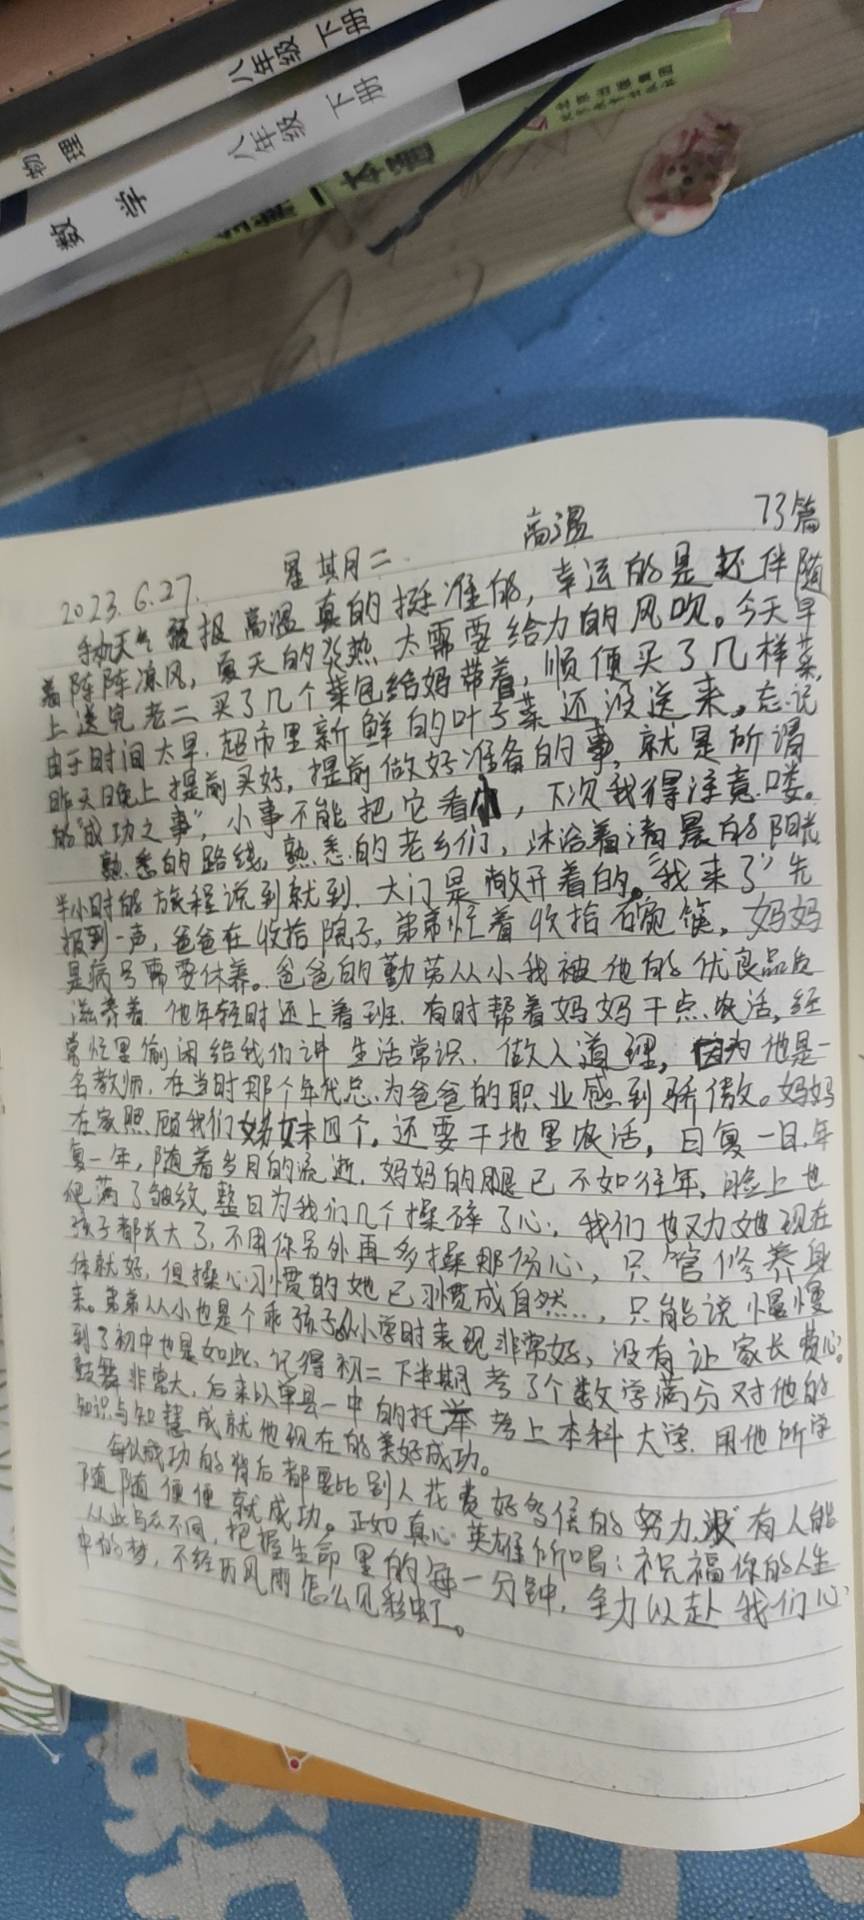 八年级 下册
物理
八年级 下册
数学
本
73篇
高温
2023.6.27. 星期二
手机天气预报高温真的挺准的，幸运的是还伴随
着阵阵凉风，夏天的炎热太需要给力的风吹。今天早
上送完老二买了几个菜包给妈带着，顺便买了几样菜，
由于时间太早，超市里新鲜的叶子菜还没送来。忘记
昨天晚上提前买好，提前做好准备的事，就是所谓
的“成功之事”，小事不能把它看小，下次我得注意喽。
熟悉的路线，熟悉的老乡们，沐浴着清晨的阳光
半小时的旅程说到就到，大门是敞开着的。“我来了”先
报到一声，爸爸在收拾院子，弟弟忙着收拾碗筷，妈妈
是病号需要休养。爸爸的勤劳从小我被他的优良品质
滋养着，他年轻时还上着班，有时帮着妈妈干点农活，经
常忙里偷闲给我们讲生活常识，做人道理，因为他是一
名教师，在当时那个年代总为爸爸的职业感到骄傲。妈妈
在家照顾我们姊妹四个，还要干地里农活，日复一日，年
复一年，随着岁月的流逝，妈妈的腿已不如往年，脸上也
爬满了皱纹，整日为我们几个操碎了心，我们也劝她现在
孩子都长大了，不用你另外再多操那份心，只管修养身
体就好，但操心习惯的她已习惯成自然…，只能说慢慢
来。弟弟从小也是个乖孩子从小学时表现非常好，没有让家长费心。
到了初中也是如此，记得初二下半期考了个数学满分对他的
鼓舞非常大，后来以单县一中的托举考上本科大学，用他所学
知识与智慧成就他现在的美好成功。
每份成功的背后都要比别人花费好多倍的努力，没有人能
随随便便就成功。正如真心英雄所唱：祝福你的人生
从此与众不同，把握生命里的每一分钟，全力以赴我们心
中的梦，不经历风雨怎么见彩虹。